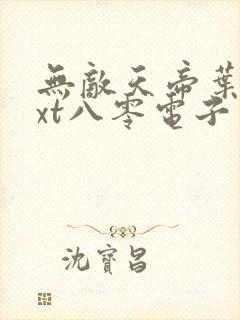 無敵天帝葉
xt八零電子
沈寶昌